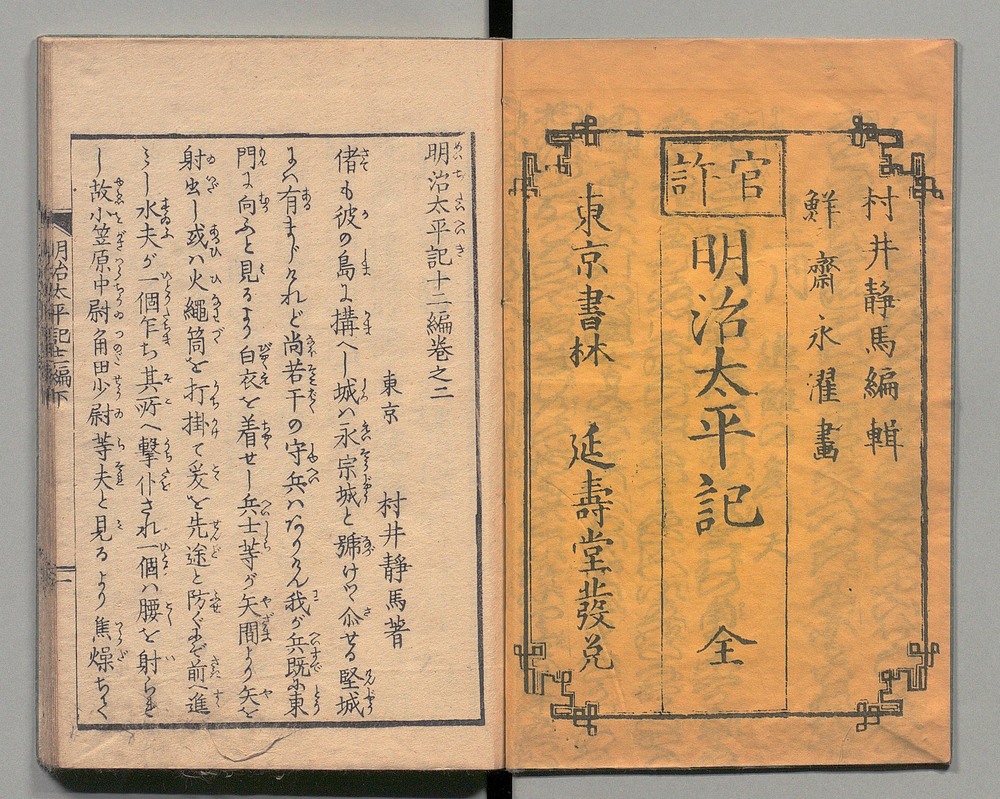 官許
村井靜馬編輯
鮮齋永濯畫
明治太平記 全
東京書林 延壽堂發兌
明治太平記十二編巻之二
東京 村井靜馬著
偖も彼の島に搆へし城ハ永宗城と號けつゝ 最堅城
にハ有まじけれど尚若干の守兵ハ 我が兵既に東
門に向ふと見るより白衣を着せし兵士等が矢間より矢を
射出し或ハ火繩筒を打掛て爰を先途と防ぐまで前へ進
みし水夫が一個乍ち其所へ撃仆され一個ハ腰を射られ
し故小笠原中尉角田少尉等夫と見るより焦燥ちて
明治太平記十二編下
二